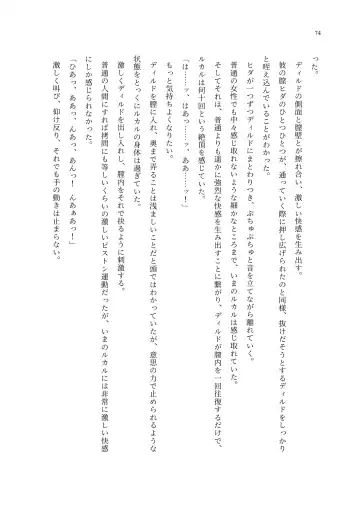 74
った。
　ディルドの側面と膣壁とが擦れ合い、激しい快感を生み出す。
　彼の膣ヒダのひとつひとつが、通っていく際に押し広げられたのと同様、抜けだそうとするディルドをしっかり
と咥え込んでいることがわかった。
　ヒダが一つずつディルドにまとわりつき、ぷちゅぷちゅと音を立てながら離れていく。
　普通の女性でも中々感じ取れないような細かなところまで、いまのルカルは感じ取れていた。
　そしてそれは、普通よりも遥かに強烈な快感を生み出すことに繋がり、ディルドが膣内を一回往復するだけで、
ルカルは何十回という絶頂を感じていた。
「は……ッ、はあっ……ッ、ああ……ッ！」
　もっと気持ちよくなりたい。
　ディルドを膣に入れ、奥まで弄ることは浅ましいことだと頭ではわかっていたが、意思の力で止められるような
状態をとっくにルカルの身体は過ぎていた。
　激しくディルドを出し入れし、膣内をそれで抉るように刺激する。
　普通の人間にすれば拷問にも等しいくらいの激しいピストン運動だったが、いまのルカルには非常に激しい快感
にしか感じられなかった。
「ひあっ、ああっ、あんっ、あんっ！　んあぁあっ！」
　激しく叫び、仰け反り、それでも手の動きは止まらない。